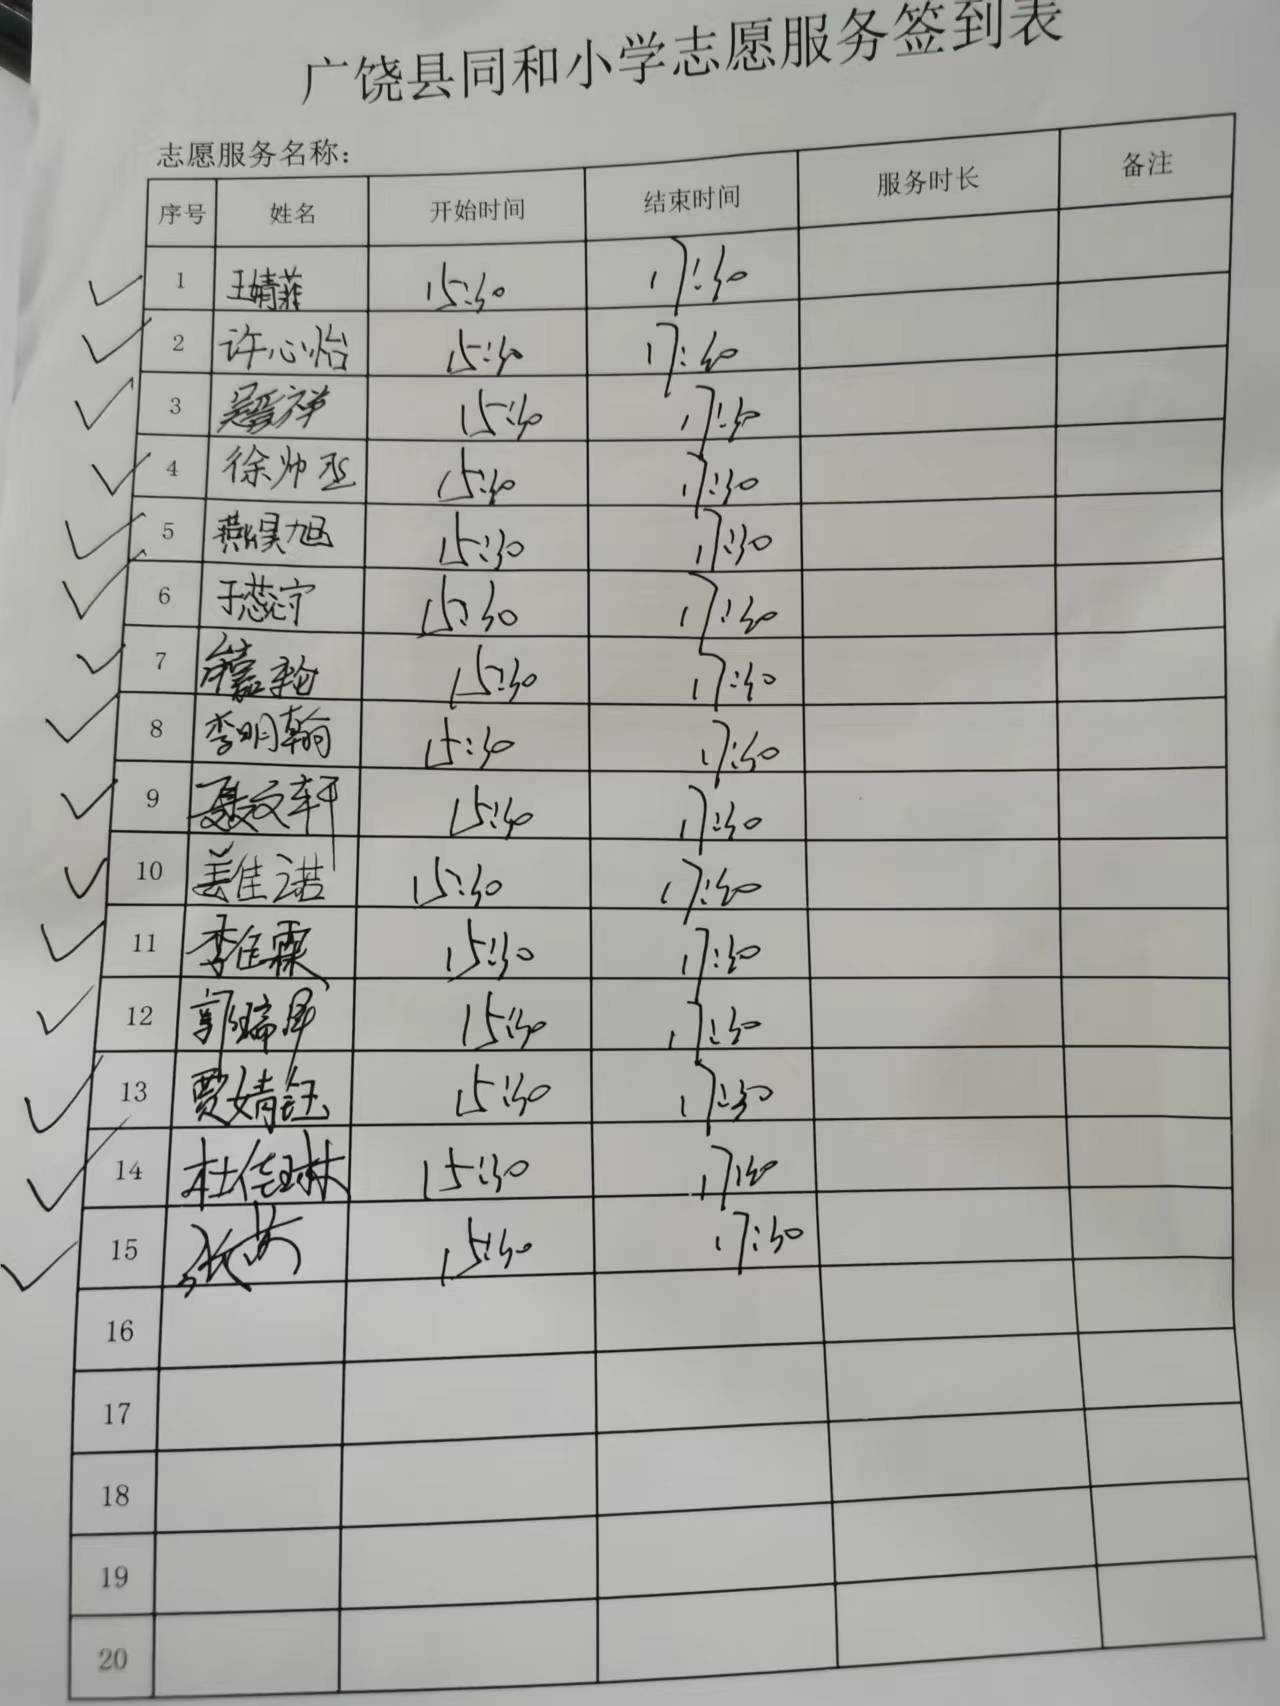 广饶县同和小学志愿服务签到表
志愿服务名称：
序号 姓名 开始时间 结束时间 服务时长 备注
1 王婧菲 15:30 17:30
2 许心怡 15:30 17:30
3 15:30 17:30
4 徐帅丞 15:30 17:30
5 燕昊旭 15:30 17:30
6 于蕊宁 15:30 17:30
7 15:30 17:30
8 李明翰 15:30 17:30
9 聂文轩 15:30 17:30
10 姜佳诺 15:30 17:30
11 李佳霖 15:30 17:30
12 15:30 17:30
13 贾婧钰 15:30 17:30
14 杜佳琳 15:30 17:30
15 15:30 17:30
16
17
18
19
20